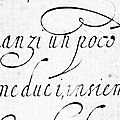 anzi un poco
ne duci, insiem